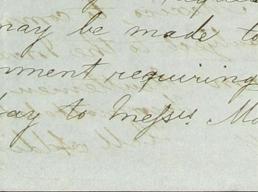 may be made to
nment requiring
pay to Messrs. Mo